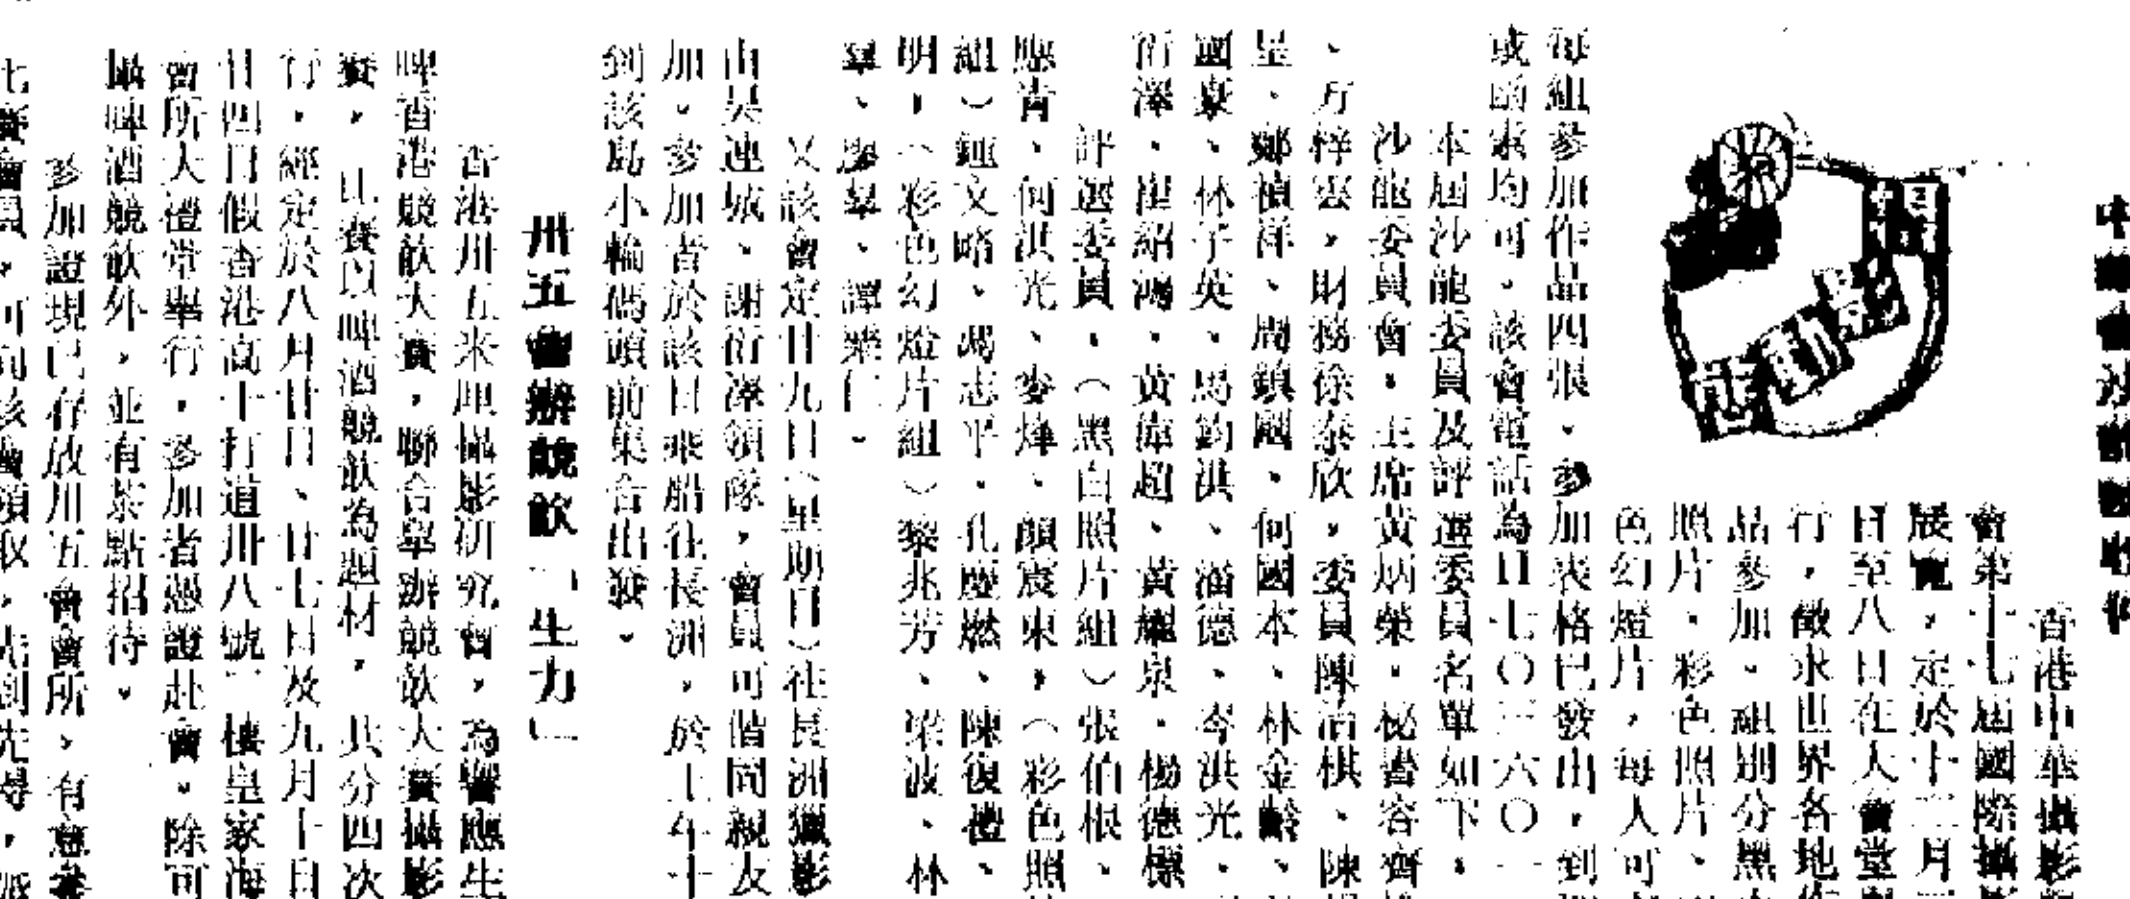 香港中華攝影
會第十七屆國際攝影
展覽，定於十二月
日至八日在大會堂
行，徵求世界各地作
品參加。組別分黑
照片，彩色照片、
色幻燈片，每人可
每組參加作品四張。參加表格已發出，到
或函索均可。該會電話為H七〇三六〇一
本屆沙龍委員及評選委員名單如下。
沙龍委員會。主席黃炳榮。秘書容齊
、方梓雲，財務徐泰欣，委員陳浩棋、陳
呈、鄭楨洋、周鎮國、何國本、林金齡、
國豪、林子英、馬鈞洪、潘德、岑洪光、
衍澤、崔紹鴻、黃偉超、黃耀泉。楊德標
評選委員，（黑白照片組）張伯根、
應青、何洪光、麥烽、顏震東，（彩色照
組）鍾文略、馮志平。孔慶燃、陳復禮、
明，（彩色幻燈片組）黎兆芳、梁波、林
羣、廖羣、譚業仁。
又該會定廿九日（星期日）往長洲獵影
由吳連城、謝衍澤領隊，會員可偕同親友
加。參加者於該日乘船往長洲，於上午十
到該島小輪碼頭前集合出發。
卅五會辦競飲「生力」
香港卅五米厘攝影研究會，為響應生
啤香港競飲大賽，聯合舉辦競飲大賽攝影
賽，比賽以啤酒競飲為題材，共分四次
行，經定於八月廿日、廿七日及九月十日
廿四日假香港高士打道卅八號一樓皇家海
會所大禮堂舉行，參加者憑證赴會。除可
攝啤酒競飲外，並有茶點招待。
參加證現已存放卅五會會所，有意者
七賽會員，可向該會領取，先到先得，派